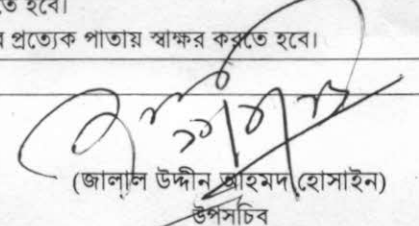 তে হবে।
প্রত্যেক পাতায় স্বাক্ষর করতে হবে।
(জালাল উদ্দীন আহমদ হোসাইন)
উপসচিব